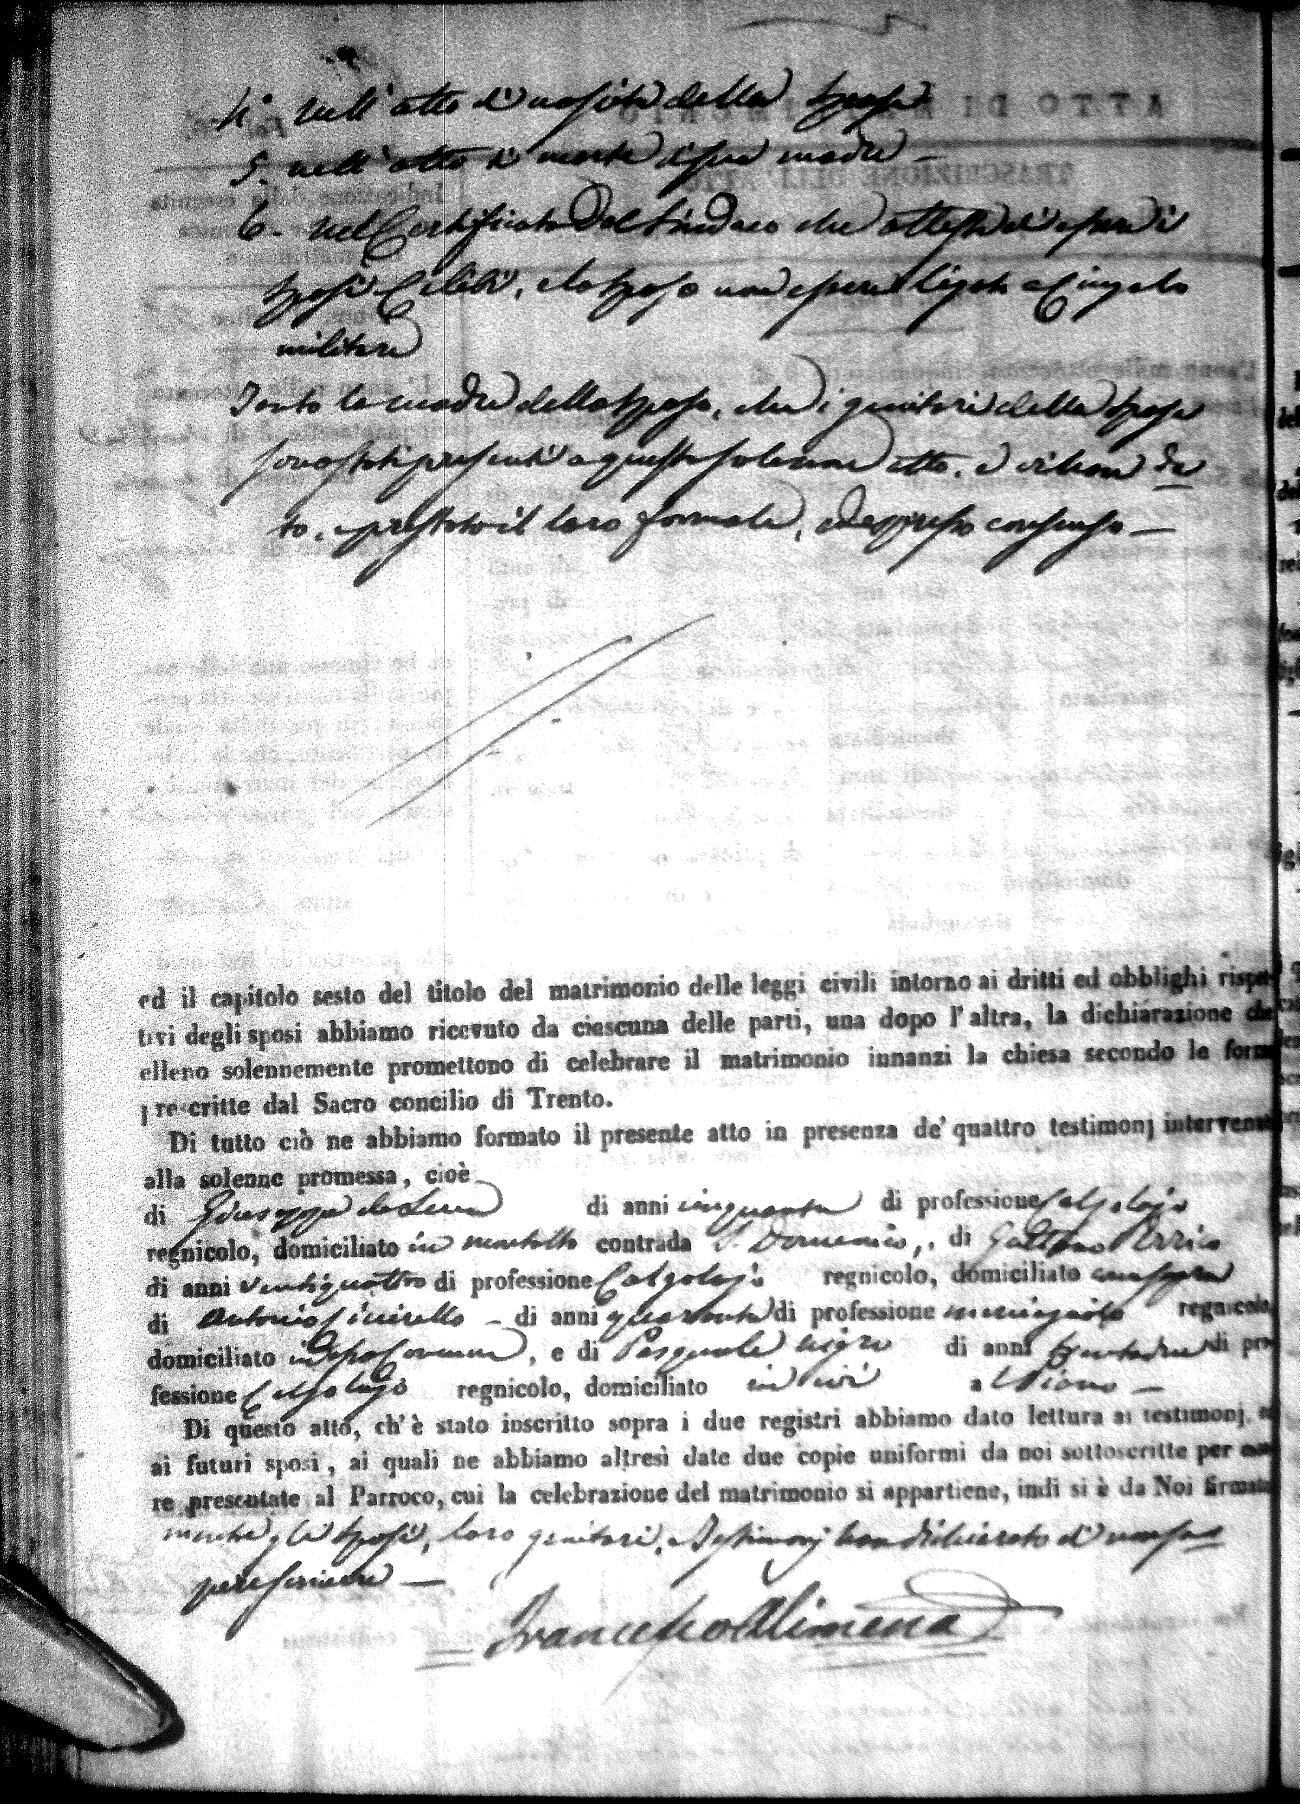 4. nell'atto di nascita della sposa
5. nell'atto di morte di sua madre —
6. nel Certificato del Sindaco che attesta di essere i
sposi Celibi, e lo sposo non essere ligato a Cingolo
militare
Tanto la madre dello sposo, che i genitori della sposa
sono stati presenti a questo solenne atto, e
to, e prestato il loro formale, ed espresso consenso —
ed il capitolo sesto del titolo del matrimonio delle leggi civili intorno ai dritti ed obblighi rispe-
tivi degli sposi abbiamo ricevuto da ciascuna delle parti, una dopo l'altra, la dichiarazione che
elleno solennemente promettono di celebrare il matrimonio innanzi la chiesa secondo le form
prescritte dal Sacro concilio di Trento.
Di tutto ciò ne abbiamo formato il presente atto in presenza de' quattro testimonj intervenut
alla solenne promessa, cioè
di Giuseppe de Luca di anni cinquanta di professione Calzolajo
regnicolo, domiciliato in contrada S. Domenico, di Gaetano Perrico
di anni ventiquattro di professione Calzolajo regnicolo, domiciliato
di Antonio Sicirello — di anni quaranta di professione regnicolo
domiciliato in , e di Pasquale Nigro di anni di pro-
fessione Calzolajo regnicolo, domiciliato in ivi a
Di questo atto, ch'è stato inscritto sopra i due registri abbiamo dato lettura ai testimonj, e
ai futuri sposi, ai quali ne abbiamo altresì date due copie uniformi da noi sottoscritte per
re presentate al Parroco, cui la celebrazione del matrimonio si appartiene, indi si è da Noi firmato
mentre gli sposi, loro genitori, e testimonj han dichiarato di non sa
pere scrivere —
Francesco Alimena